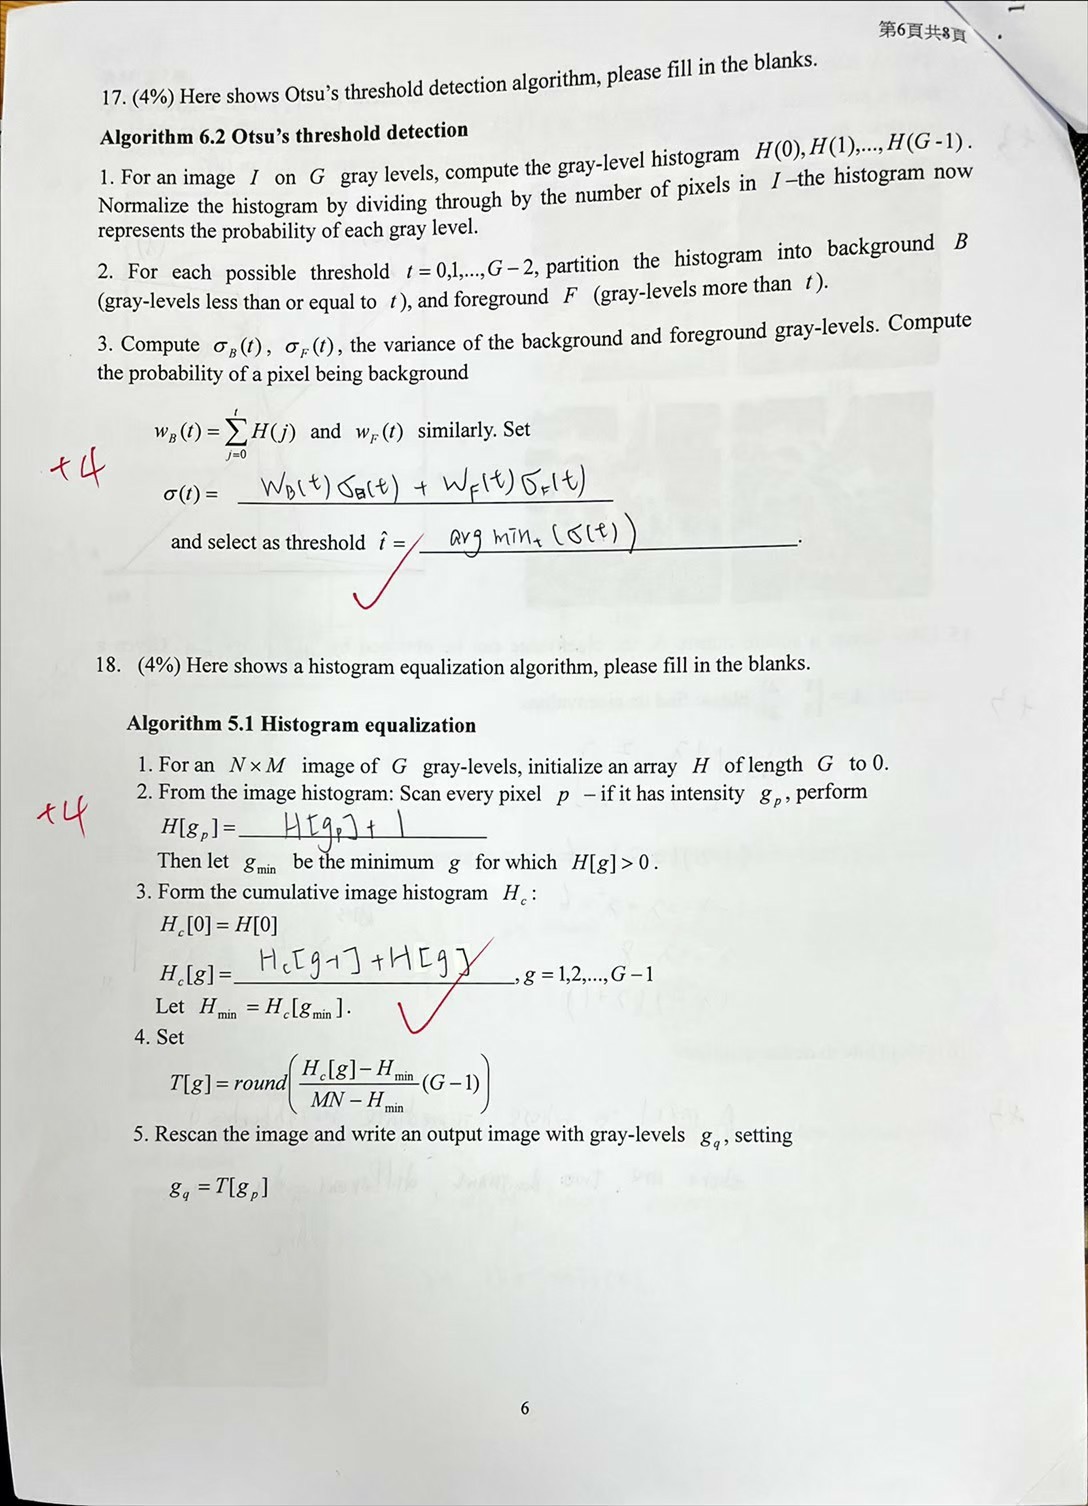 第6頁共8頁
17. (4%) Here shows Otsu's threshold detection algorithm, please fill in the blanks.
Algorithm 6.2 Otsu's threshold detection
1. For an image I on G gray levels, compute the gray-level histogram H(0), H(1),..., H(G-1).
Normalize the histogram by dividing through by the number of pixels in I–the histogram now
represents the probability of each gray level.
2. For each possible threshold t = 0,1,...,G−2, partition the histogram into background B
(gray-levels less than or equal to t), and foreground F (gray-levels more than t).
3. Compute σ_B(t), σ_F(t), the variance of the background and foreground gray-levels. Compute
the probability of a pixel being background
w_B(t) = ∑_{j=0}^{t} H(j) and w_F(t) similarly. Set
+4
σ(t) = W_B(t)σ_B(t) + W_F(t)σ_F(t)
and select as threshold t̂ = arg min_t (σ(t)).
18. (4%) Here shows a histogram equalization algorithm, please fill in the blanks.
Algorithm 5.1 Histogram equalization
1. For an N×M image of G gray-levels, initialize an array H of length G to 0.
2. From the image histogram: Scan every pixel p – if it has intensity g_p, perform
+4
H[g_p] = H[g_p] + 1
Then let g_min be the minimum g for which H[g] > 0.
3. Form the cumulative image histogram H_c:
H_c[0] = H[0]
H_c[g] = H_c[g-1] + H[g], g = 1,2,...,G−1
Let H_min = H_c[g_min].
4. Set
T[g] = round( (H_c[g] − H_min) / (MN − H_min) (G−1) )
5. Rescan the image and write an output image with gray-levels g_q, setting
g_q = T[g_p]
6